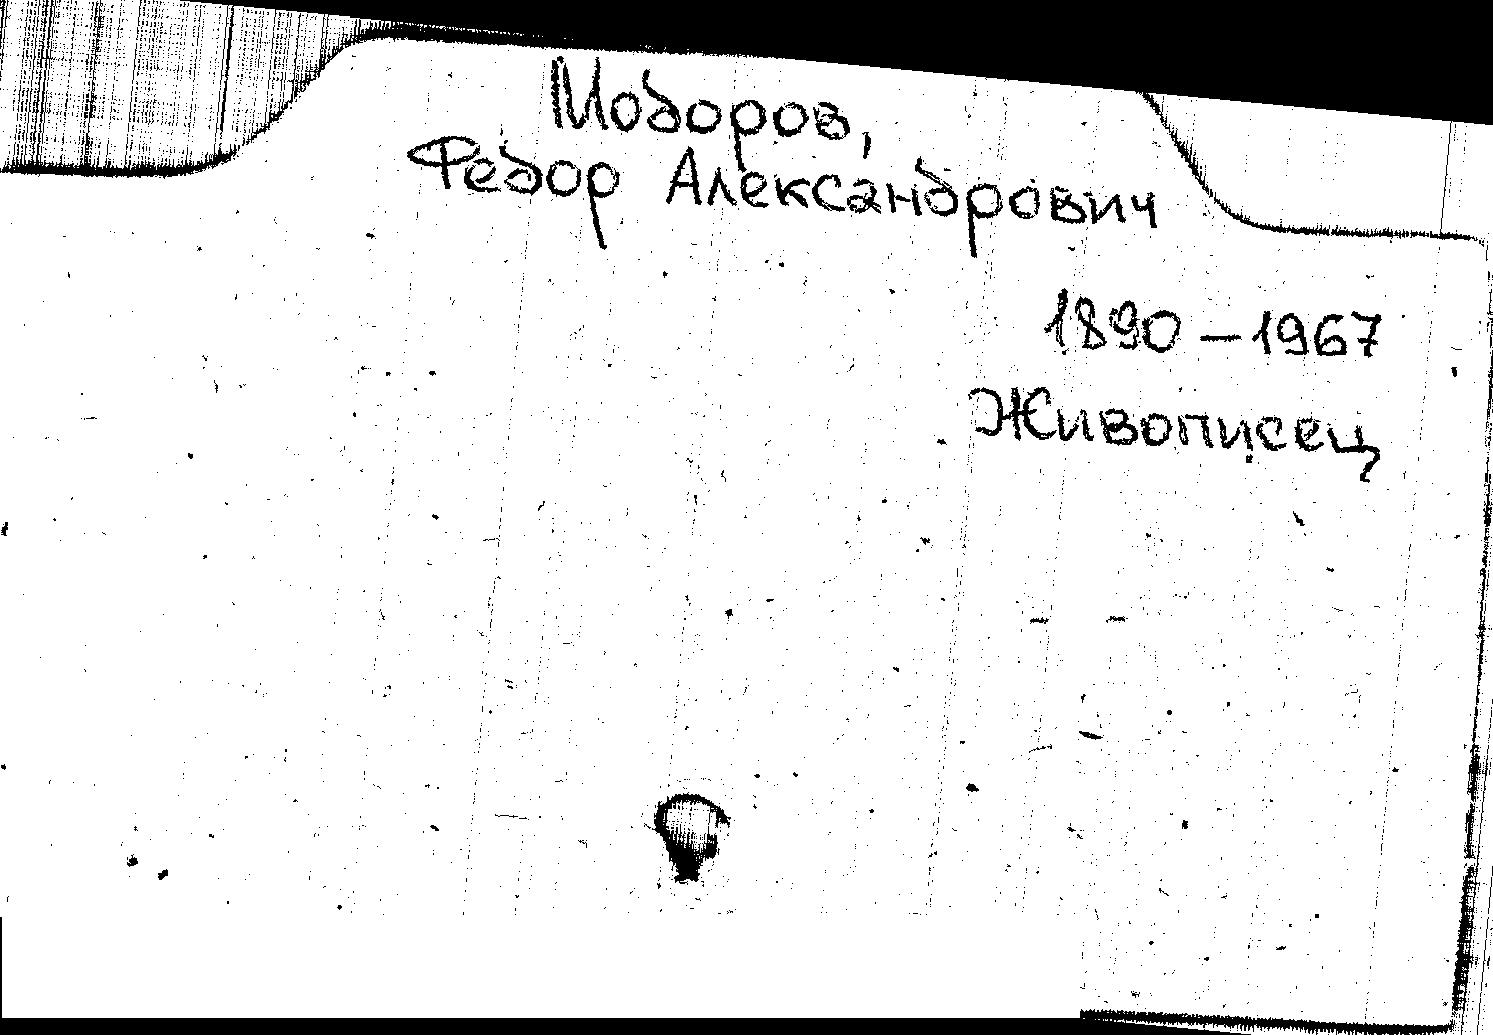 Модоров,
Федор Александрович
1890 – 1967
Живописец